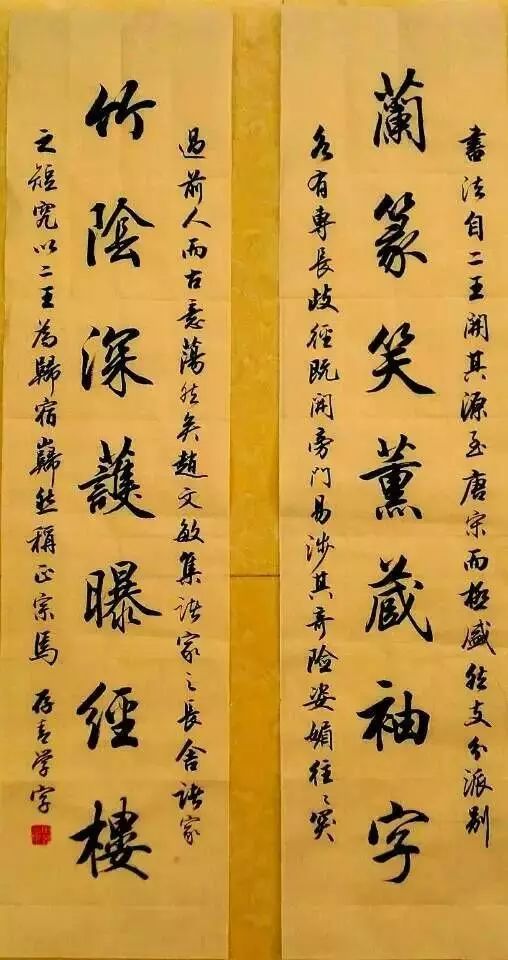 書法自二王開其源至唐宋而極盛然支分派別
蘭篆笑薰藏袖字
各有專長歧徑既開旁門易涉其奇險姿媚往〻突
過前人而古意蕩然矣趙文敏集諸家之長舍諸家
竹陰深護曝經樓
之短究以二王為歸宿巋然稱正宗焉 存青学字